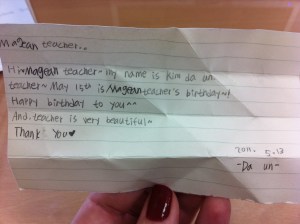 Magean teacher..
Hi~Magean teacher~ My name is Kim da un.
teacher~ May 15th is Magean teacher's birthday~!
Happy birthday to you^^
And. teacher is very beautiful~
Thank You♥
2011. 5. 13
-Da un-